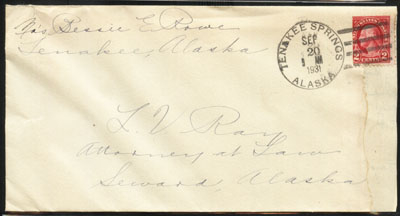 Mrs Bessie E. Rowe
Tenakee, Alaska
TENAKEE SPRINGS
SEP
20
1931
ALASKA
L. V. Ray
Attorney at Law
Seward, Alaska